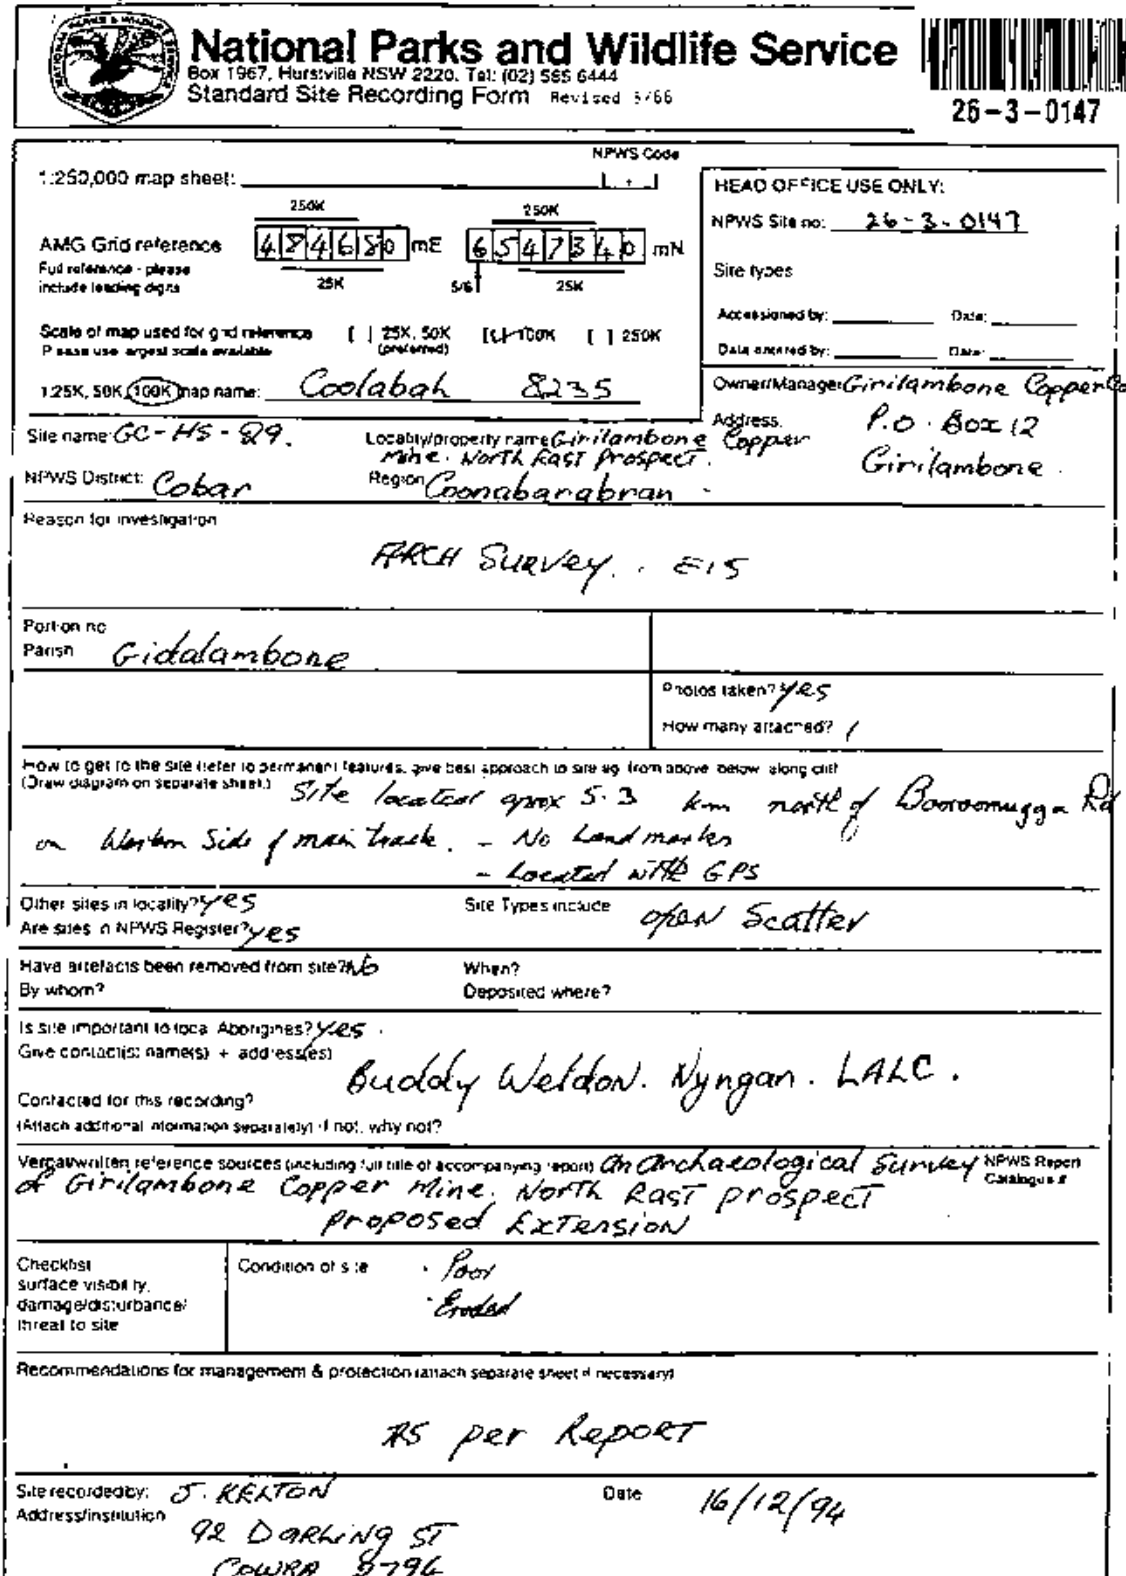 National Parks and Wildlife Service
Box 1967, Hurstville NSW 2220. Tel: (02) 585 6444
Standard Site Recording Form Revised 5/88
26-3-0147
NPWS Code
1:250,000 map sheet:
HEAD OFFICE USE ONLY:
NPWS Site no: 26-3-0147
250K 250K
AMG Grid reference 484680 mE 6547340 mN
Full reference - please
include leading digits
25K 5/6 25K
Site types
Accessioned by: Date:
Data entered by: Date:
Scale of map used for grid reference [ ] 25K, 50K [✓] 100K [ ] 250K
Please use largest scale available (preferred)
1:25K, 50K, 100K map name: Coolabah 8235
Owner/Manager Girilambone Copper Co
Address. P.O. Box 12
Girilambone.
Site name: GC-HS-29. Locality/property name Girilambone Copper
Mine. North East Prospect.
NPWS District: Cobar Region Coonabarabran
Reason for investigation
ARCH SURVEY. EIS
Portion no
Parish Gidalambone
Photos taken? yes
How many attached? 1
How to get to the site (refer to permanent features, give best approach to site eg. from above, below, along cliff.
(Draw diagram on separate sheet.) Site located aprox 5.3 km north of Booroomugga Rd
on Western Side of main track. - No Land marks
- Located with GPS
Other sites in locality? yes Site Types include open Scatter
Are sites in NPWS Register? yes
Have artefacts been removed from site? No When?
By whom? Deposited where?
Is site important to local Aborigines? yes.
Give contact(s) name(s) + address(es)
Buddy Weldon. Nyngan. LALC.
Contacted for this recording?
(Attach additional information separately) If not, why not?
Verbal/written reference sources (including full title of accompanying report) An Archaeological Survey NPWS Report
Catalogue #
of Girilambone Copper Mine. North East prospect
proposed Extension
Checklist
surface visibility,
damage/disturbance/
threat to site
Condition of site · Poor
· Eroded
Recommendations for management & protection (attach separate sheet if necessary)
As per Report
Site recorded by: J. KELTON Date 16/12/94
Address/institution
92 DARLING ST
COWRA 2794